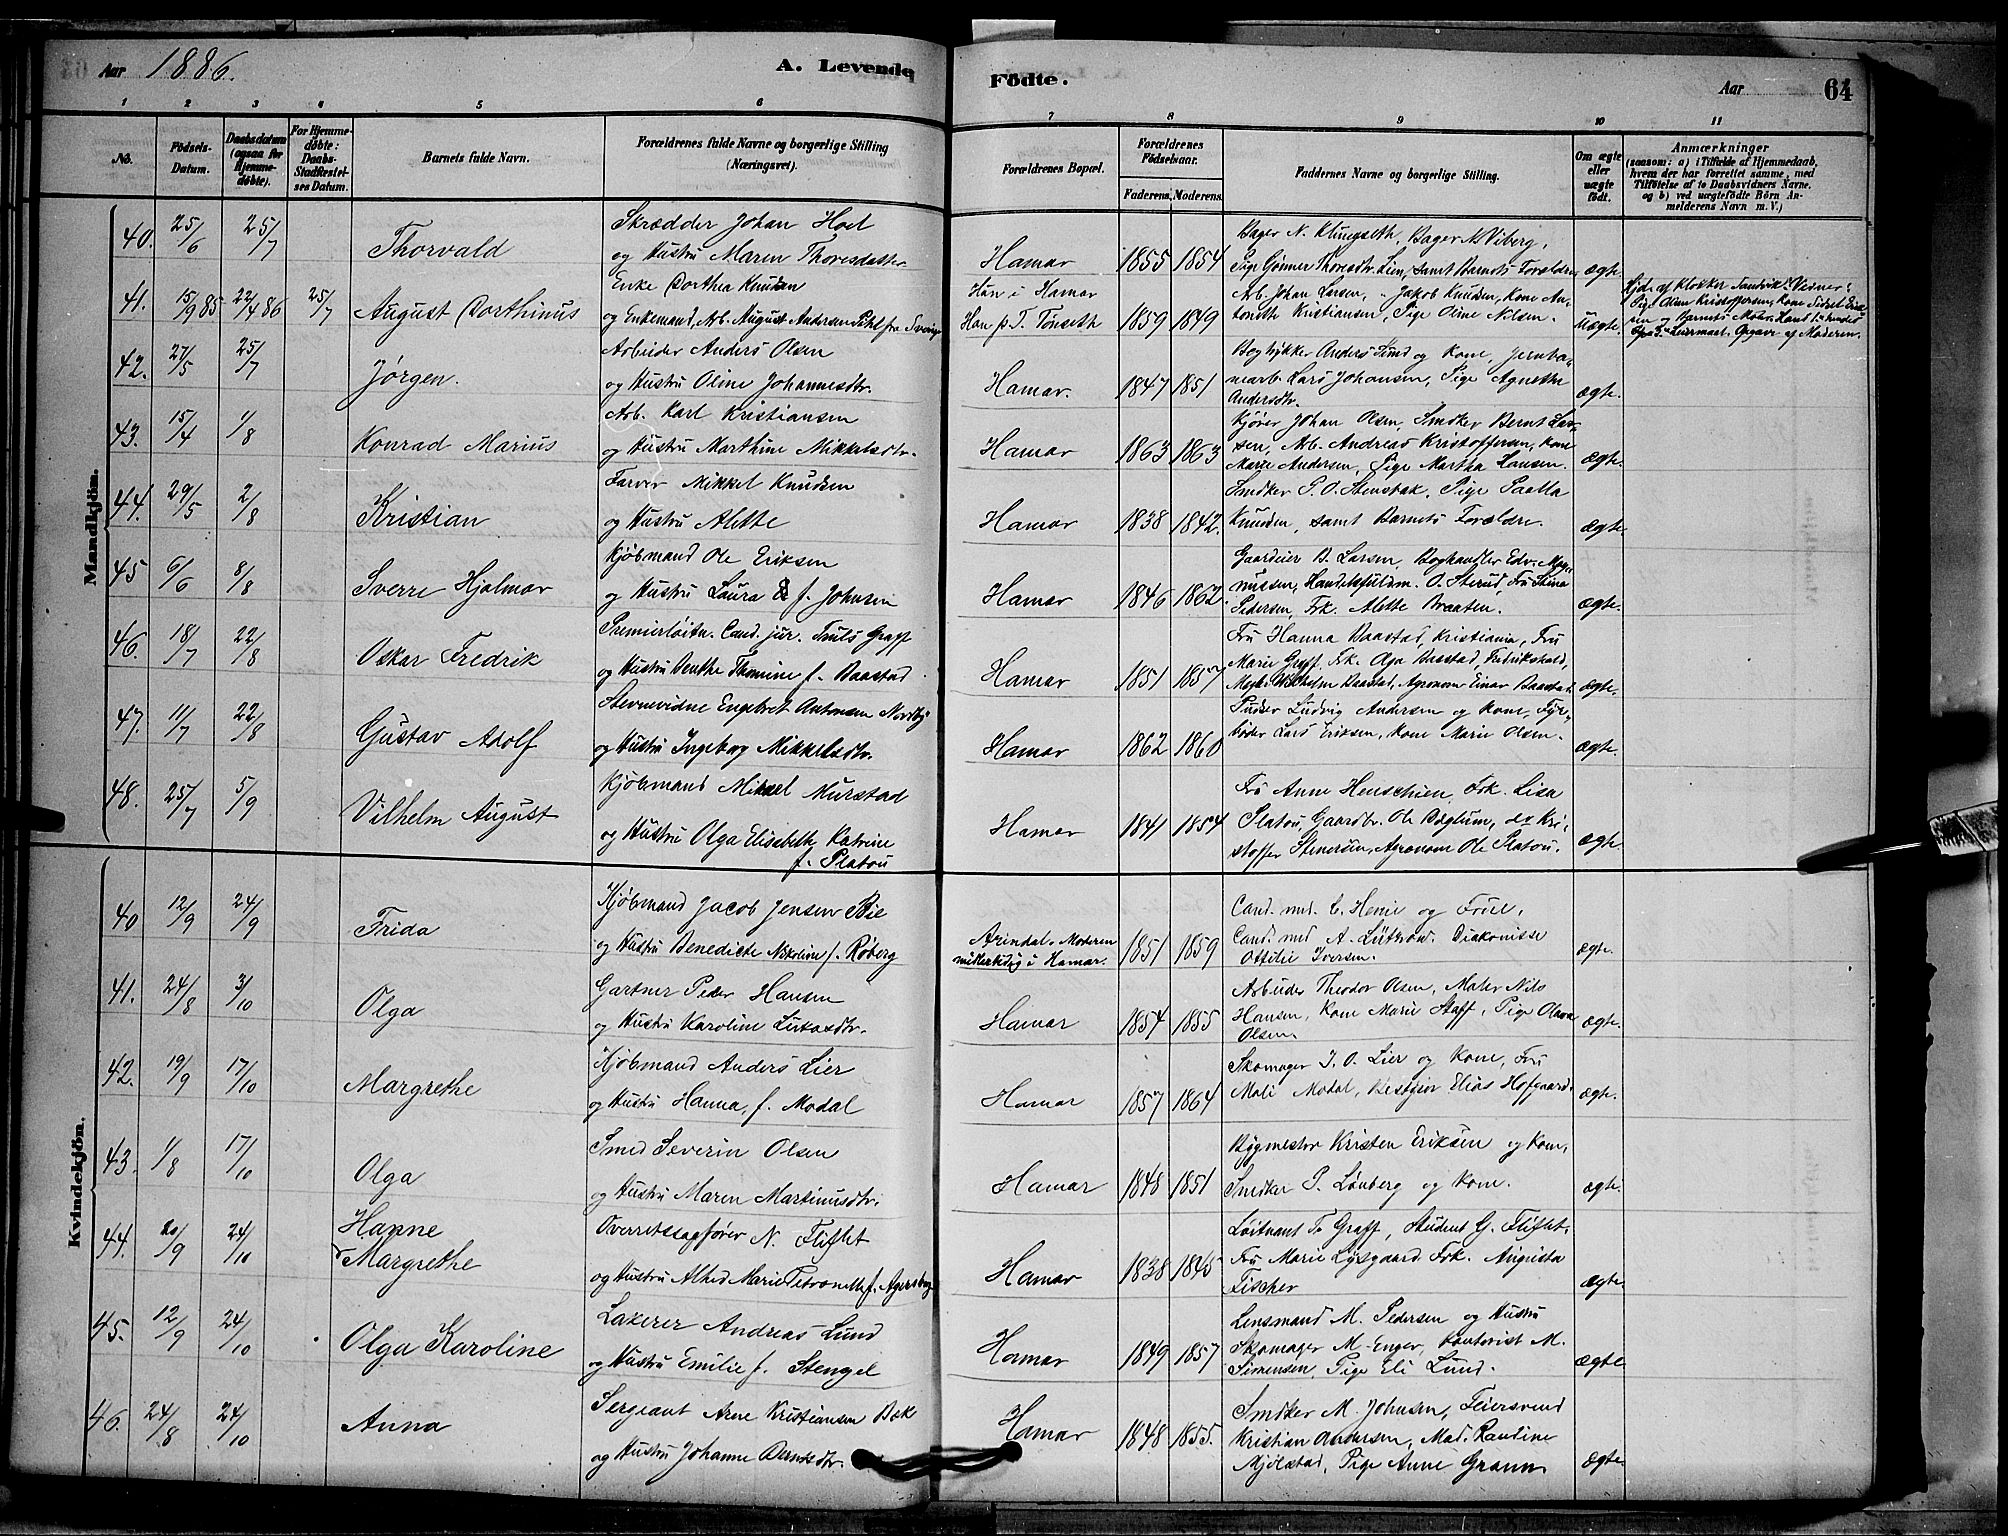 Aar 1886.
A. Levende
Fødte.
Aar
64
1 2 3 4 5 6 7 8 9 10 11
No.
Fødsels-Datum.
Daabsdatum (ogsaa for Hjemmedøbte).
For Hjemmedøbte: Daabs-Stadfæstelses Datum.
Barnets fulde Navn.
Forældrenes fulde Navne og borgerlige Stilling (Næringsvei).
Forældrenes Bopæl.
Forældrenes Fødselsaar.
Faderens. Moderens.
Faddernes Navne og borgerlige Stilling.
Om ægte eller uægte født.
Anmærkninger
(saasom: a) i Tilfælde af Hjemmedaab, hvem der har forrettet samme, med Tilføielse af to Daabsvidners Navne. og b) ved uægtefødte Børn Anmelderens Navn m. V.)
Mandkjøn.
40. 25/6 25/7 Thorvald
Skrædder Johan Hoel
og Hustru Maren Thoresdatter.
Hamar 1855 1854
Bager N. Klungseth, Bager N. Viberg,
Pige Gønner Thoresdtr. Lien, samt Barnets Forældre
ægte.
41. 15/9 85 22/4 86 25/7 August Dorthinus
Enke Dorthea Knudsen
og Enkemand, Arb. August Andersen Pihl fra Sverige
Hun i Hamar
Han p. T. Tønseth 1859 1849
Arb. Johan Larsen, Jakob Knudsen, Kone An-
tonette Kristiansen, Pige Oline Nilsen.
Uægte.
Hjdr. af Klokker Sandvik. Vidner:
Pige Oline Kristoffersen, Kone Sidsel Erik-
sen og Barnets Moder. Hans 1ste hendes
3die Leiermaal. Opgave af Moderen.
42. 27/5 25/7 Jørgen.
Arbeider Anders Olsen
og Hustru Oline Johannesdtr.
Hamar. 1847 1851
Bogtrykker Anders Lund og Kone, Jernba-
nearb. Lars Johansen, Pige Agnethe
Andersdtr.
ægte.
43. 15/4 1/8 Konrad Marius
Arb. Karl Kristiansen
og Hustru Marthine Mikkelsdtr.
Hamar 1863 1863
Kjører Johan Olsen, Smdker Bernt Lar-
sen, Arb. Andreas Kristoffersen, Kone
Marie Andersen, Pige Martha Hansen.
ægte.
44. 29/5 2/8 Kristian
Farver Mikkel Knudsen
og Hustru Alette
Hamar 1838 1842.
Smdker P. O. Stensbak, Pige Paulla
Knudsen, samt Barnets Forældre.
ægte.
45 6/6 8/8 Sverre Hjalmar
Kjøbmand Ole Eriksen
og Hustru Laura f. Johnsen
Hamar 1846 1862.
Gaardeier B. Larsen, Boghandler Edv. Mag-
nussen, Handelsfuldm. O. Sterud, Fru Stina
Pedersen, Frk. Alette Braaten.
ægte.
46. 18/7 22/8 Oskar Fredrik
Premierløitn. Cand. jur. Truls Graff
og Hustru Benthe Thomine f. Baastad.
Hamar 1851 1857
Fru Hanna Baastad, Kristiania, Fru
Marie Graff, Frk. Aga Baastad, Fredrikshald,
Wilhelm Baastad, Agronom Einar Baastad.
ægte.
47. 11/7 22/8 Gustav Adolf
Stevnevidne Engebret Antonsen Nordby
og Hustru Ingeborg Mikkelsdtr.
Hamar 1862 1860
Pudser Ludvig Andersen og Kone, Fyr-
bøder Lars Eriksen, Kone Marie Olsen.
ægte.
48. 25/7 5/9 Vilhelm August
Kjøbmand Mikael Murstad
og Hustru Olga Elisabeth Katrine
f. Platou
Hamar 1841 1854
Fru Anne Henschien, Frk. Lisa
Platou, Gaardbr. Ole Bæglum, do Kri-
stoffer Stenersen, Agronom Ole Platou.
ægte.
Kvindekjøn.
40 12/9 24/9 Frida
Kjøbmand Jacob Jensen Bie
og Hustru Benedicte Nikoline f. Røberg
Arindal. Moderen
midlertidig i Hamar. 1851 1859
Cand. med. C. Henie og Frue,
Cand. med. A. Lütkow. Diakonisse
Ottilie Iversen.
ægte.
41. 24/8 3/10 Olga
Gartner Peder Hansen
og Hustru Karoline Lukasdtr.
Hamar 1854 1855
Arbeider Theodor Olsen, Maler Nils
Hansen, Kone Marie Staff, Pige Olava
Olsen.
ægte.
42. 19/9 17/10 Margrethe
Kjøbmand Anders Lier
og Hustru Hanna, f. Modal
Hamar 1857 1864
Skomager J. O. Lier og Kone, Fru
Mali Modal, Bestyrer Elias Hofgaard.
ægte.
43. 1/8 17/10 Olga
Smed Severin Olsen
og Hustru Maren Martinusdtr.
Hamar 1848 1851
Bygmester Kristen Eriksen og Kone,
Smedker P. Lønberg og Kone.
ægte.
44. 20/9 24/10 Hanne
Margrethe
Overretssagfører N. Fliflet
og Hustru Alhed Marie Petronelle f. Agersborg
Hamar 1838 1845
Løitnant T. Graff, Student G. Fliflet,
Fru Marie Lysgaard Frk. Augusta
Fischer
ægte.
45. 12/9 24/10 Olga Karoline
Lakerer Andreas Lund
og Hustru Emilie f. Stengel
Hamar 1849 1857
Lensmand M. Pedersen og Hustru
Skomager M. Enger, Kontorist M.
Simensen, Pige Eli Lund.
ægte
46. 24/8 24/10 Anna
Sergeant Arne Kristiansen Bæk
og Hustru Johanne Berntsdtr.
Hamar 1848 1855.
Smdker M. Johnsen, Feiersvend
Kristian Andersen, Mad. Pauline
Mjølstad, Pige Anne Grann.
ægte.